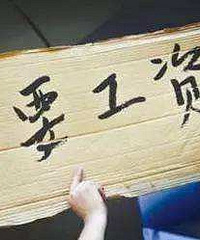 要工资